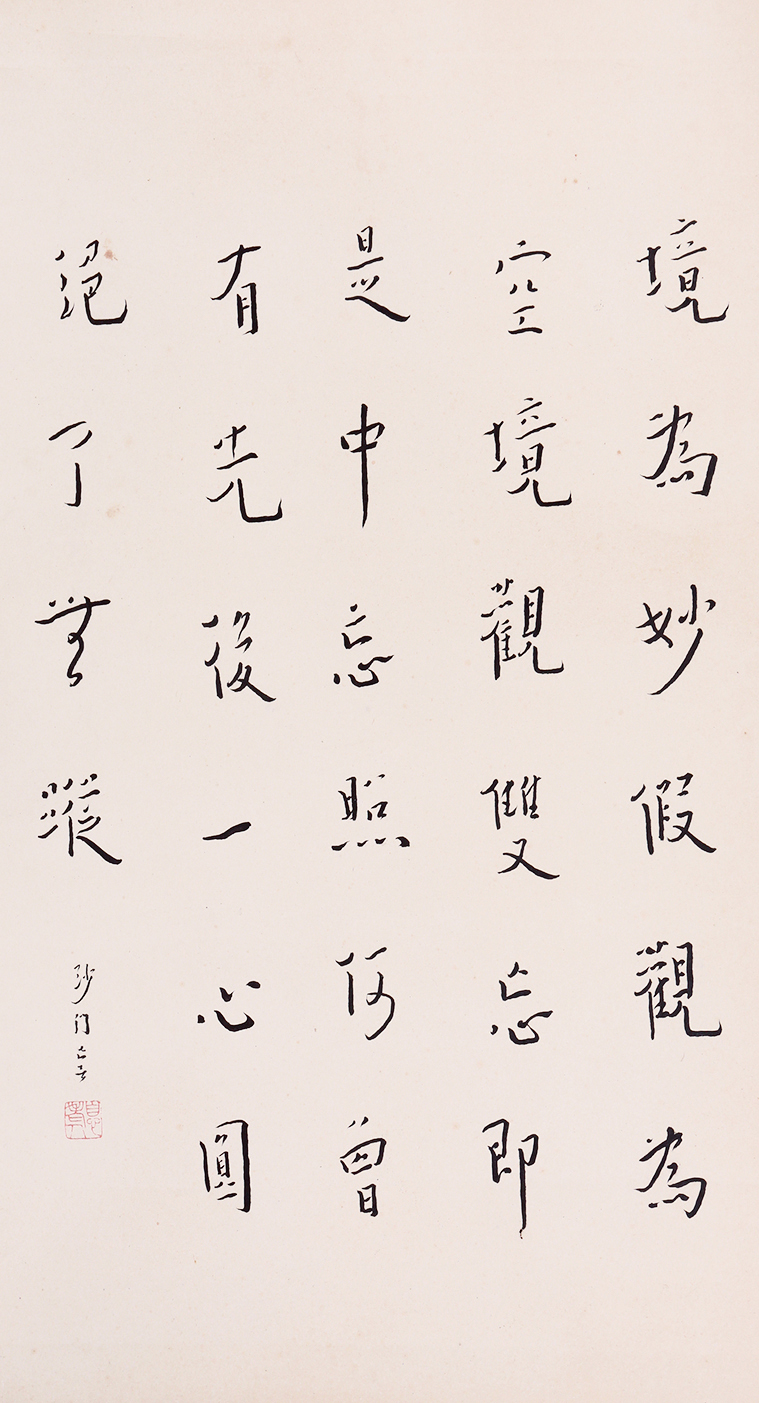 境為妙假觀為
空境觀雙忘即
是中忘照何曾
有先後一心圓
絕了無蹤
沙門亡言